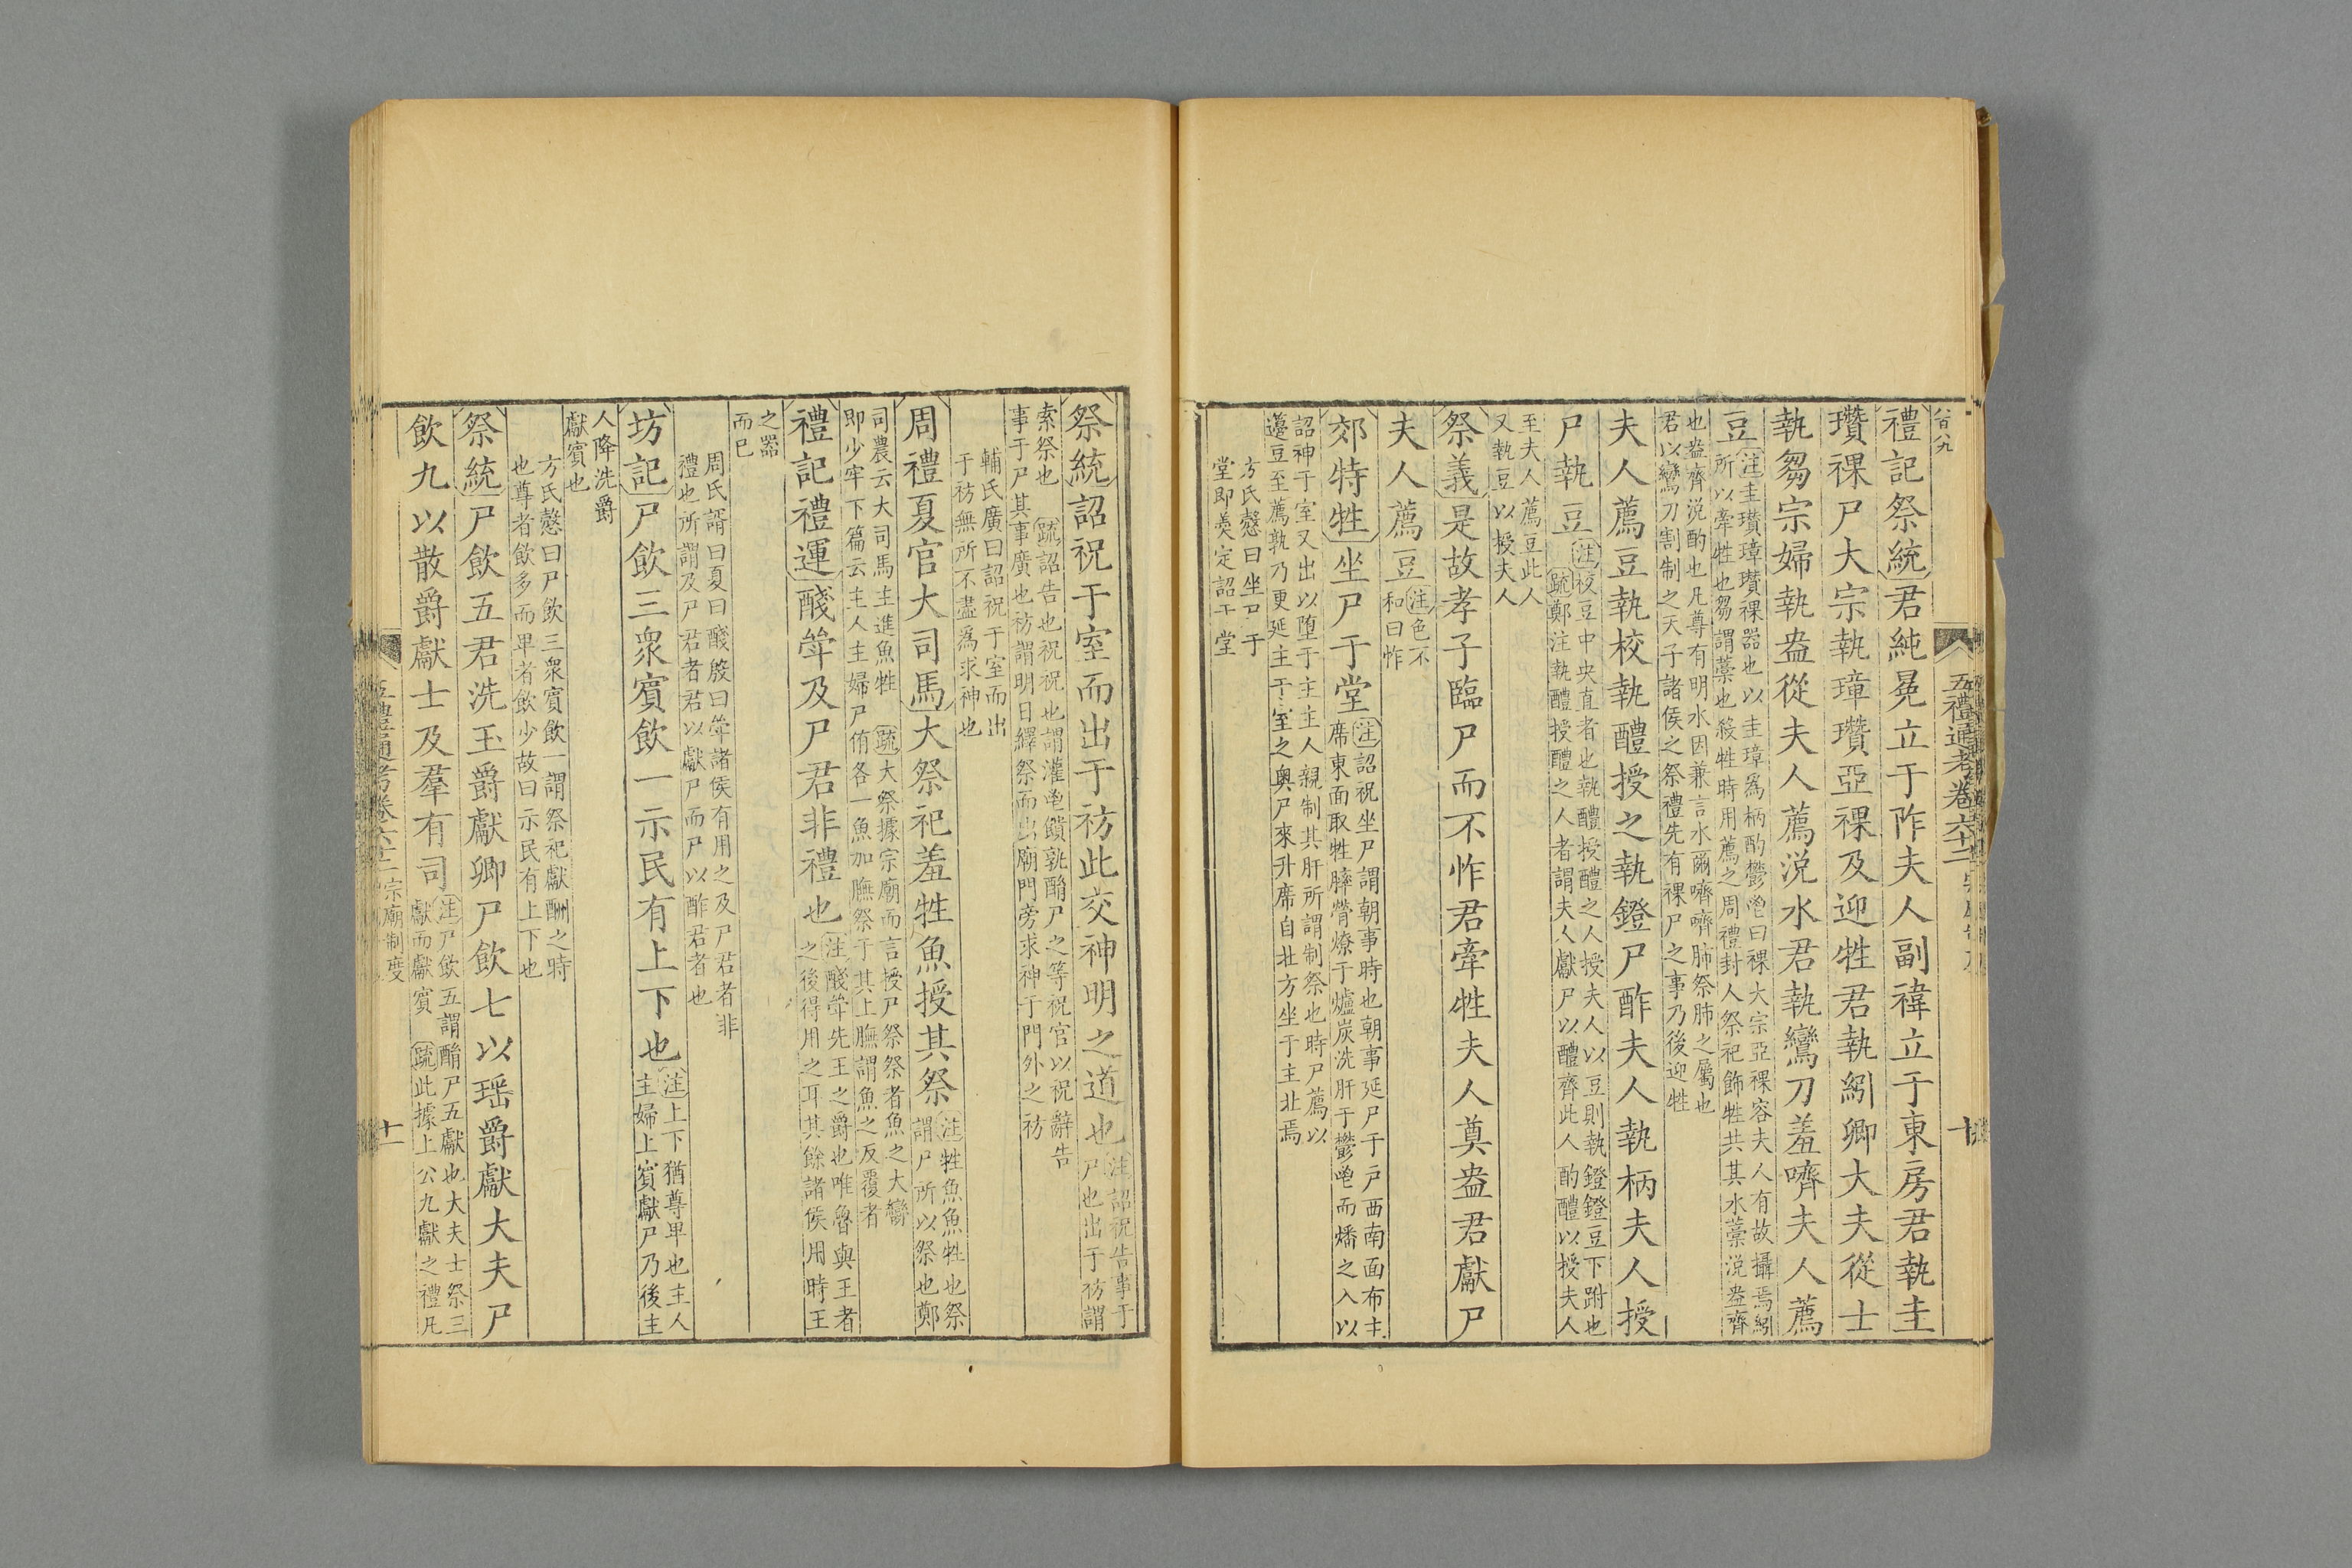 五禮通考卷六十二
十
禮記祭統君純冕立于阼夫人副褘立于東房君執圭
瓚祼尸大宗執璋瓚亞祼及迎牲君執紖卿大夫從士
執芻宗婦執盎從夫人薦涚水君執鸞刀羞嚌夫人薦
豆注圭瓚璋瓚祼器也以圭璋爲柄酌鬱鬯曰祼大宗亞祼容夫人有故攝焉紖
所以牽牲也芻謂藁也殺牲時用薦之周禮封人祭祀飾牲共其水藁涚盎齊
也盎齊涚酌也凡尊有明水因兼言水爾嚌嚌肺祭肺之屬也
君以鸞刀割制之天子諸侯之祭禮先有祼尸之事乃後迎牲
夫人薦豆執校執醴授之執鐙尸酢夫人執柄夫人授
尸執豆注校豆中央直者也執醴授醴之人授夫人以豆則執鐙鐙豆下跗也
疏鄭注執醴授醴之人者謂夫人獻尸以醴齊此人酌醴以授夫人
至夫人薦豆此人
又執豆以授夫人
祭義是故孝子臨尸而不怍君牽牲夫人奠盎君獻尸
夫人薦豆注色不
和曰怍
郊特牲坐尸于堂注詔祝坐尸謂朝事時也朝事延尸于戶西南面布主
席東面取牲膟膋燎于爐炭洗肝于鬱鬯而燔之入以
詔神于室又出以墮于主主人親制其肝所謂制祭也時尸薦以
籩豆至薦孰乃更延主于室之奧尸來升席自北方坐于主北焉
方氏慤曰坐尸于
堂即羹定詔于堂
祭統詔祝于室而出于祊此交神明之道也注詔祝告事于
尸也出于祊謂
索祭也疏詔告也祝祝也謂灌鬯饋孰酳尸之等祝官以祝辭告
事于尸其事廣也祊謂明日繹祭而出廟門旁求神于門外之祊
輔氏廣曰詔祝于室而出
于祊無所不盡爲求神也
周禮夏官大司馬大祭祀羞牲魚授其祭注牲魚魚牲也祭
謂尸所以祭也鄭
司農云大司馬主進魚牲疏大祭據宗廟而言授尸祭祭者魚之大臠
即少牢下篇云主人主婦尸侑各一魚加膴祭于其上膴謂魚之反覆者
禮記禮運醆斝及尸君非禮也注醆斝先王之爵也唯魯與王者
之後得用之耳其餘諸侯用時王
之器
而已
周氏諝曰夏曰醆殷曰斝諸侯有用之及尸君者非
禮也所謂及尸君者君以獻尸而尸以酢君者也
坊記尸飲三衆賓飲一示民有上下也注上下猶尊卑也主人
主婦上賓獻尸乃後主
人降洗爵
獻賓也
方氏慤曰尸飲三衆賓飲一謂祭祀獻酬之時
也尊者飲多而卑者飲少故曰示民有上下也
祭統尸飲五君洗玉爵獻卿尸飲七以瑶爵獻大夫尸
飲九以散爵獻士及羣有司注尸飲五謂酳尸五獻也大夫士祭三
獻而獻賓疏此據上公九獻之禮凡
五禮通考卷六十二宗廟制度
十一